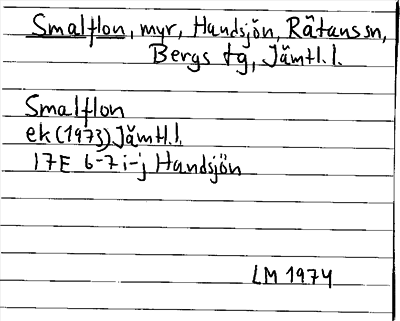 Smalflon, myr, Handsjön, Rätanssn,
Bergs tg, Jämtl.l.
Smalflon
ek (1973) Jämtl.l.
17E 6-7 i-j Handsjön
LM 1974